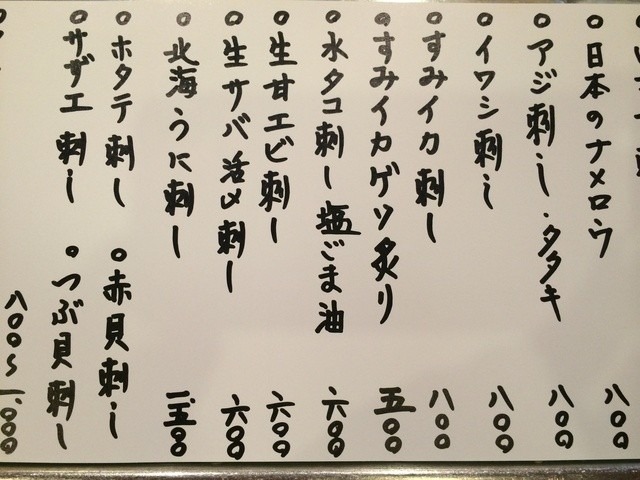 ○日本のナメロウ 八〇〇
○アジ刺し・タタキ 八〇〇
○イワシ刺し 八〇〇
○すみイカ刺し 八〇〇
○すみイカゲソ炙り 五〇〇
○水タコ刺し塩ごま油 六〇〇
○生甘エビ刺し 六〇〇
○生サバ活〆刺し 六〇〇
○北海うに刺し 一、五〇〇
○ホタテ刺し ○赤貝刺し
○サザエ刺し ○つぶ貝刺し
八〇〇〜一、〇〇〇